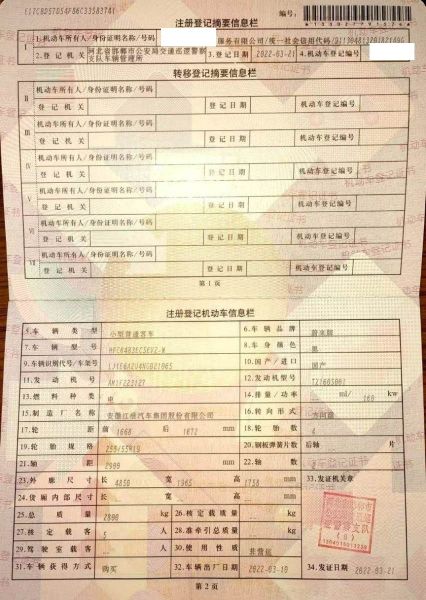 注册登记摘要信息栏
编号:
1.机动车所有人/身份证明名称/号码 服务有限公司/统一社会信用代码/
2.登记机关 河北省邯郸市公安局交通巡逻警察支队车辆管理所 3.登记日期 2022-03-21 4.机动车登记编号
转移登记摘要信息栏
II 机动车所有人/身份证明名称/号码
登记机关 登记日期 机动车登记编号
III 机动车所有人/身份证明名称/号码
登记机关 登记日期 机动车登记编号
IV 机动车所有人/身份证明名称/号码
登记机关 登记日期 机动车登记编号
V 机动车所有人/身份证明名称/号码
登记机关 登记日期 机动车登记编号
VI 机动车所有人/身份证明名称/号码
登记机关 登记日期 机动车登记编号
VII 机动车所有人/身份证明名称/号码
登记机关 登记日期 机动车登记编号
第1页
注册登记机动车信息栏
5.车辆类型 小型普通客车 6.车辆品牌 蔚来牌
7.车辆型号 8.车身颜色 黑
9.车辆识别代号/车架号 10.国产/进口 国产
11.发动机号 12.发动机型号 TZ160S001
13.燃料种类 电 14.排量/功率 ml/ 160 kw
15.制造厂名称 安徽江淮汽车集团股份有限公司 16.转向形式 方向盘
17.轮距 前 1668 后 1672 mm 18.轮胎数 4
19.轮胎规格 255/55R19 20.钢板弹簧片数 后轴 片
21.轴距 2900 mm 22.轴数 2
23.外廓尺寸 长 4850 宽 1965 高 1758 mm 33.发证机关章
24.货厢内部尺寸 长 宽 高 mm
25.总质量 kg 26.核定载质量 kg
27.核定载客 5 人 28.准牵引总质量 kg
29.驾驶室载客 人 30.使用性质 非营运
31.车辆获得方式 购买 32.车辆出厂日期 2022-03-10 34.发证日期 2022-03-21
第2页